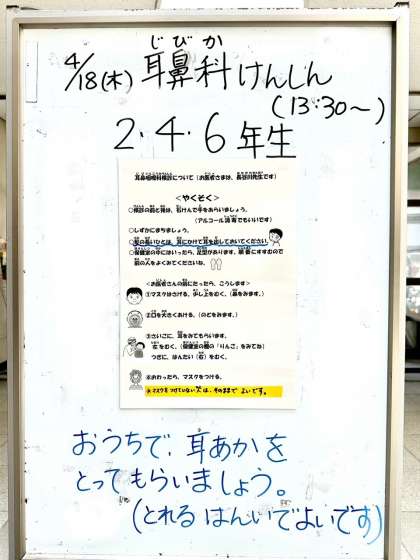 じびか
4/18(木) 耳鼻科けんしん
(13:30〜)
2.4.6年生
耳鼻咽喉科検診について(お医者さまは、長谷川先生です)
<やくそく>
○検診の前と後は、石けんで手をあらいましょう。
(アルコール消毒でもいいです)
○しずかにまちましょう。
○髪の長いひとは、耳にかけて耳を出しておいてください。
○保健室の中にはいったら、足型があります。順番にすすむので
前の人をよくみてくださいね。
<お医者さんの前にたったら、こうします>
①マスクはさげる。少し上をむく。(鼻をみます。)
②口を大きくあける。(のどをみます。)
③さいごに、耳をみてもらいます。
左をむく。(保健室の棚の「りんご」をみてね)
つぎに、はんたい(右)をむく。
④おわったら、マスクをつける。
※マスクをつけていない人は、そのままでよいです。
おうちで、耳あかを
とってもらいましょう。
(とれるはんいでよいです)